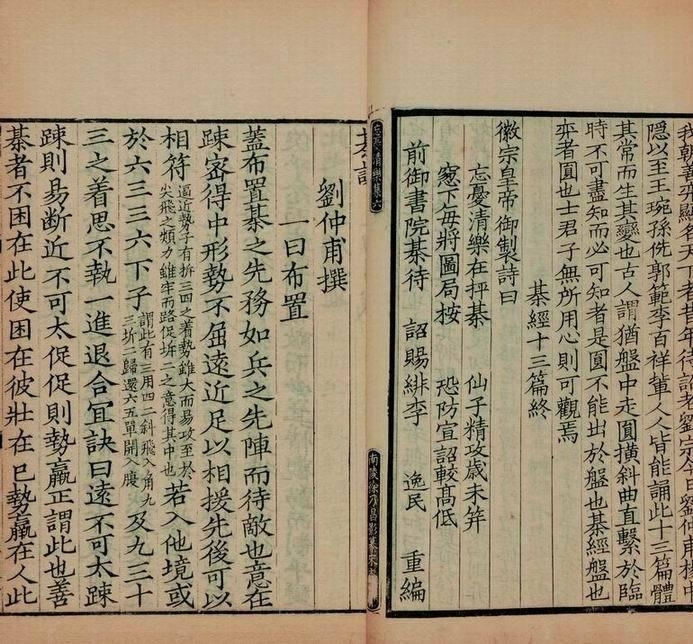 我朝善弈顯名天下者昔年待詔老劉宗今日劉仲甫楊中
隱以至王琬孫侁郭範李百祥輩人人皆能誦此十三篇體
其常而生其變也古人謂猶盤中走圓橫斜曲直繫於臨
時不可盡知而必可知者是圓不能出於盤也棊經盤也
弈者圓也士君子無所用心則可觀焉
棊經十三篇終
徽宗皇帝御製詩曰
忘憂清樂在枰棊 仙子精攻歲未笄
窓下每將圖局按 恐防宣詔較髙低
前御書院棊待 詔賜緋李 逸民 重編
忘憂清樂集六
南陵徐乃昌影摹宋
棊訣
劉仲甫撰
一曰布置
蓋布置棊之先務如兵之先陣而待敵也意在
踈密得中形勢不屈遠近足以相援先後可以
相符逼近勢子有拆三四之着勢雖大而易攻至於尖飛之類力雖牢而路促拆二之意得其中也若入他境或
於六三三六下子謂此有三用四二斜飛入角九三拆二歸還六五單開入腹及九三十
三之着思不執一進退合冝訣曰遠不可太踈
踈則易断近不可太促促則勢羸正謂此也善
棊者不困在此使困在彼壯在巳勢羸在人此